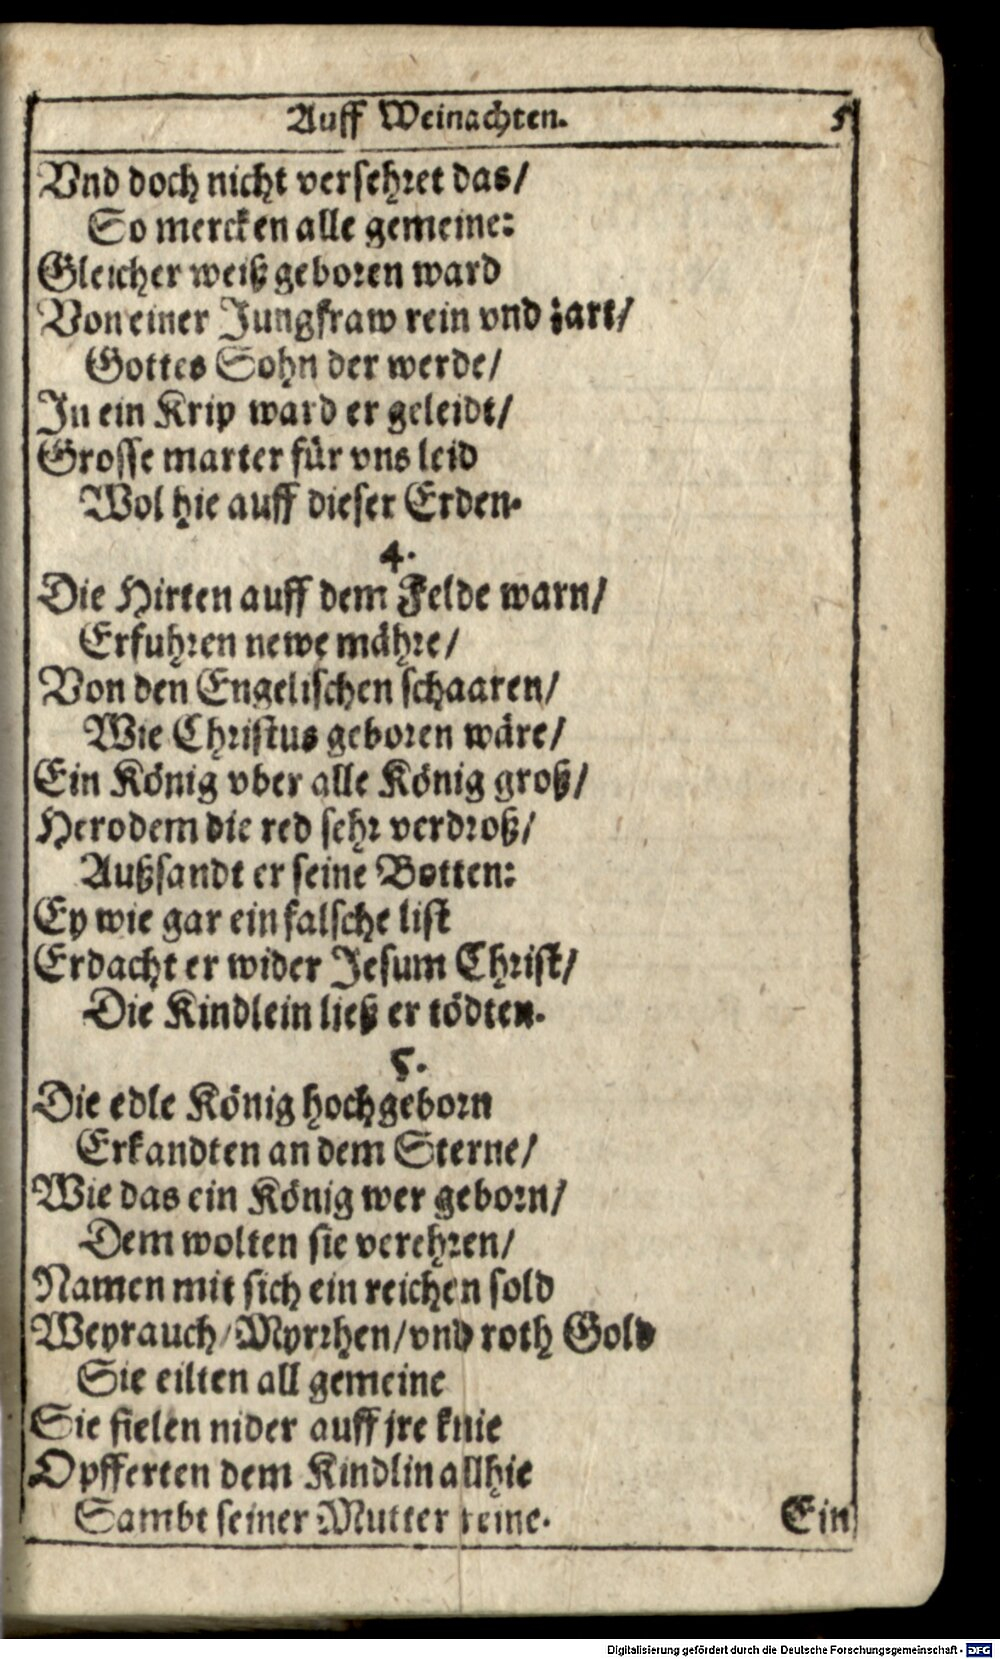 Auff Weinachten. 5
Vnd doch nicht versehret das/
So mercken alle gemeine:
Gleicher weiß geboren ward
Von einer Jungfraw rein vnd zart/
Gottes Sohn der werde/
In ein Krip ward er geleidt/
Grosse marter für vns leid
Wol hie auff dieser Erden.
4.
Die Hirten auff dem Felde warn/
Erfuhren newe mähre/
Von den Engelischen schaaren/
Wie Christus geboren wäre/
Ein König vber alle König groß/
Herodem die red sehr verdroß/
Außsandt er seine Botten:
Ey wie gar ein falsche list
Erdacht er wider Jesum Christ/
Die Kindlein ließ er tödten.
5.
Die edle König hochgeborn
Erkandten an dem Sterne/
Wie das ein König wer geborn/
Dem wolten sie verehren/
Namen mit sich ein reichen sold
Weyrauch/Myrrhen/vnd roth Gold
Sie eilten all gemeine
Sie fielen nider auff jre knie
Opfferten dem Kindlin allhie
Sambt seiner Mutter reine. Ein
Digitalisierung gefördert durch die Deutsche Forschungsgemeinschaft - DFG